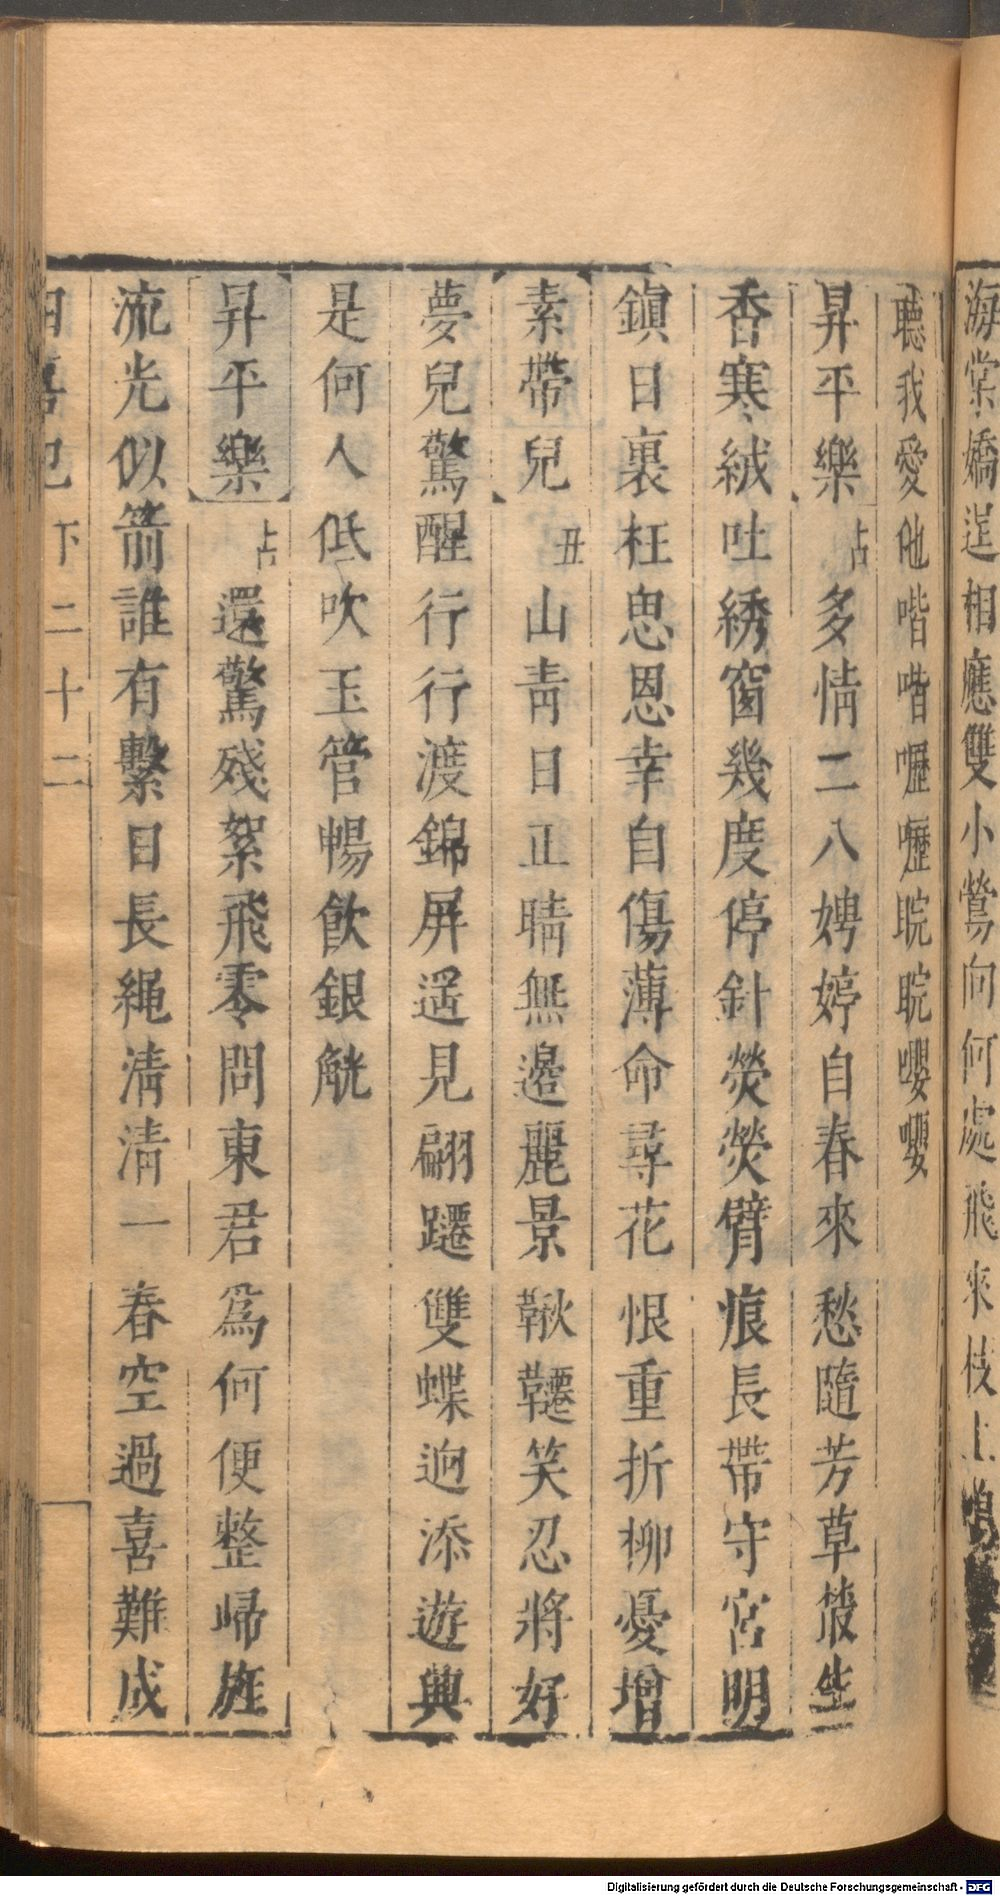 海棠嬌逞相應雙小鶯向何處飛來枝上鳴
聽我愛他喈喈嚦嚦睆睆嚶嚶
昇平樂占多情二八娉婷自春來愁隨芳草叢生
香寒絨吐綉窗幾度停針熒熒臂痕長帶守宮明
鎮日裏枉思恩幸自傷薄命尋花恨重折柳憂增
素帶兒丑山靑日正晴無邊麗景鞦韆笑忍將好
夢兒驚醒行行渡錦屏遥見翩躚雙蝶迥添遊興
是何人低吹玉管暢飲銀觥
昇平樂占還驚殘絮飛零問東君爲何便整歸旌
流光似箭誰有繫日長繩淸淸一春空過喜難成
四喜記下二十二
Digitalisierung gefördert durch die Deutsche Forschungsgemeinschaft - DFG